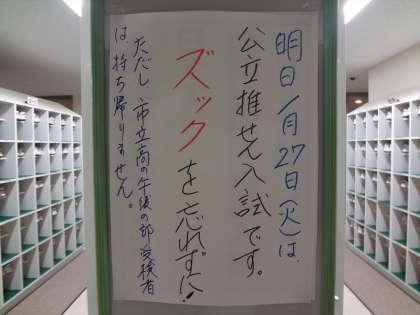 明日1月27日(火)は、
公立推せん入試です。
ズックを忘れずに!
ただし市立高の午後の部受検者
は、持ち帰りません。